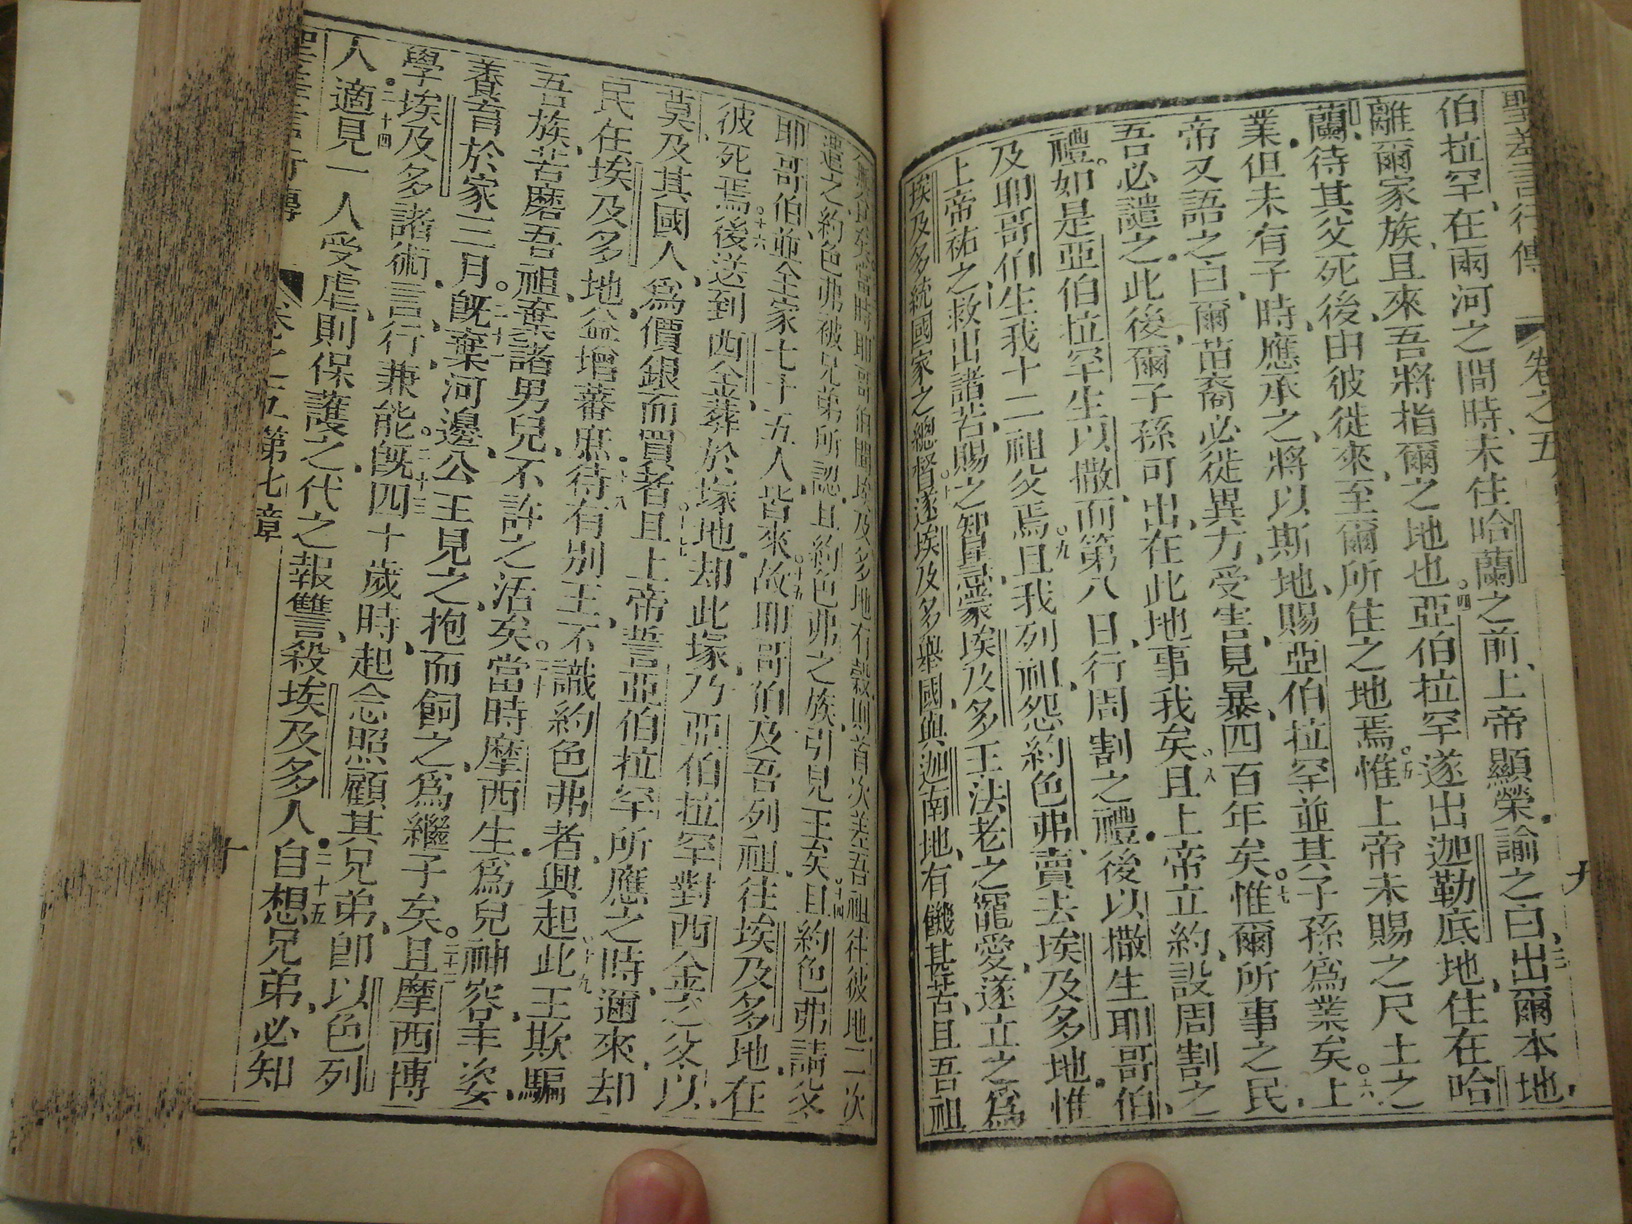 聖差言行傳 卷之五 九
伯拉罕、在兩河之間時、未往哈蘭之前、上帝顯榮、諭之曰、三出爾本地、
離爾家族、且來吾將指爾之地也。四亞伯拉罕遂出迦勒底地住在哈
蘭、待其父死後、由彼徙來、至爾所住之地焉。五惟上帝未賜之尺土之
業、但未有子時、應承之、將以斯地、賜亞伯拉罕並其子孫為業矣。六上
帝又語之曰、爾苗裔必徙異方、受害見暴四百年矣。七惟爾所事之民、
吾必譴之、此後、爾子孫可出、在此地事我矣。八且上帝立約、設周割之
禮。如是亞伯拉罕生以撒、而第八日、行周割之禮、後以撒生耶哥伯、
及耶哥伯生我十二祖父焉。九且我列祖、怨約色弗、賣去埃及多地、惟
上帝祐之、救出諸苦、賜之智量、蒙埃及多王法老之寵愛、遂立之為
埃及多統國家之總督。十遂埃及多舉國、與迦南地、有饑甚苦、且吾祖
當時耶哥伯聞埃及多地有穀、則首次差吾祖往彼地、二次
遣之、約色弗被兄弟所認、且約色弗之族、引見王矣。十四且約色弗請父
耶哥伯、並全家七十五人皆來。十五故耶哥伯及吾列祖、往埃及多地、在
彼死焉。十六後送到西金、葬於塚地、却此塚、乃亞伯拉罕對西金之父、以
莫及其國人、為價銀而買者。十七且上帝誓亞伯拉罕所應之時、邇來、却
民在埃及多地益增蕃庶。十八待有別王、不識約色弗者興起。十九此王欺騙
吾族、苦磨吾祖、棄諸男兒、不許之活矣。二十當時摩西生、為兒神容丰姿、
養育於家三月。二十一旣棄河邊、公王見之、抱而飼之、為繼子矣。二十二且摩西博
學埃及多諸術、言行兼能。二十三旣四十歲時、起念照顧其兄弟、卽以色列
人。二十四適見一人受虐、則保護之、代之報讐、殺埃及多人。二十五自想兄弟、必知
聖差言行傳 卷之五 第七章 十